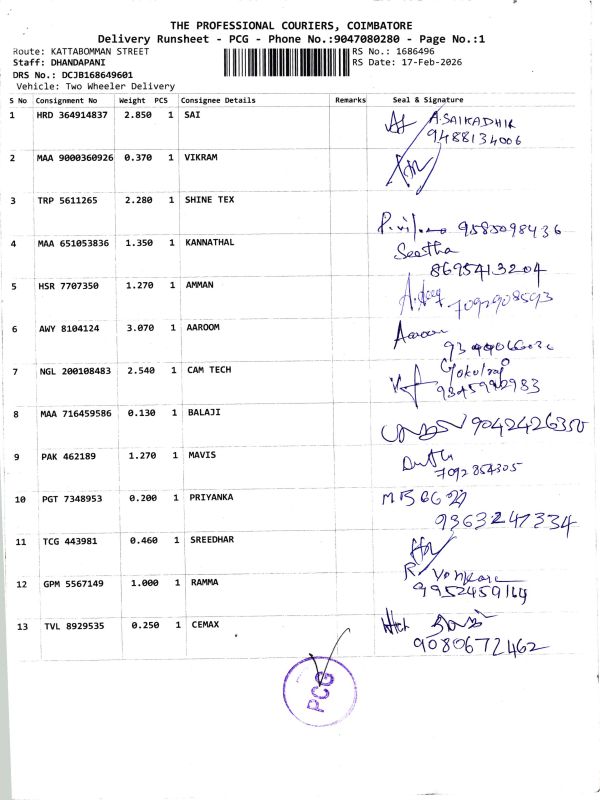 THE PROFESSIONAL COURIERS, COIMBATORE
Delivery Runsheet - PCG - Phone No.:9047080280 - Page No.:1
Route: KATTABOMMAN STREET RS No.: 1686496
Staff: DHANDAPANI RS Date: 17-Feb-2026
DRS No.: DCJB168649601
Vehicle: Two Wheeler Delivery
S No Consignment No Weight PCS Consignee Details Remarks Seal & Signature
1 HRD 364914837 2.850 1 SAI A.SAIKADHIR
9488134006
2 MAA 9000360926 0.370 1 VIKRAM
3 TRP 5611265 2.280 1 SHINE TEX
9585098436
4 MAA 651053836 1.350 1 KANNATHAL Seetha
8695413204
5 HSR 7707350 1.270 1 AMMAN
7092908593
6 AWY 8104124 3.070 1 AAROOM Aaroom
7 NGL 200108483 2.540 1 CAM TECH Gokulraj
9345992983
8 MAA 716459586 0.130 1 BALAJI
9042426350
9 PAK 462189 1.270 1 MAVIS
7092854305
10 PGT 7348953 0.200 1 PRIYANKA
9363247334
11 TCG 443981 0.460 1 SREEDHAR
12 GPM 5567149 1.000 1 RAMMA
9952459164
13 TVL 8929535 0.250 1 CEMAX
9080672462
PCG